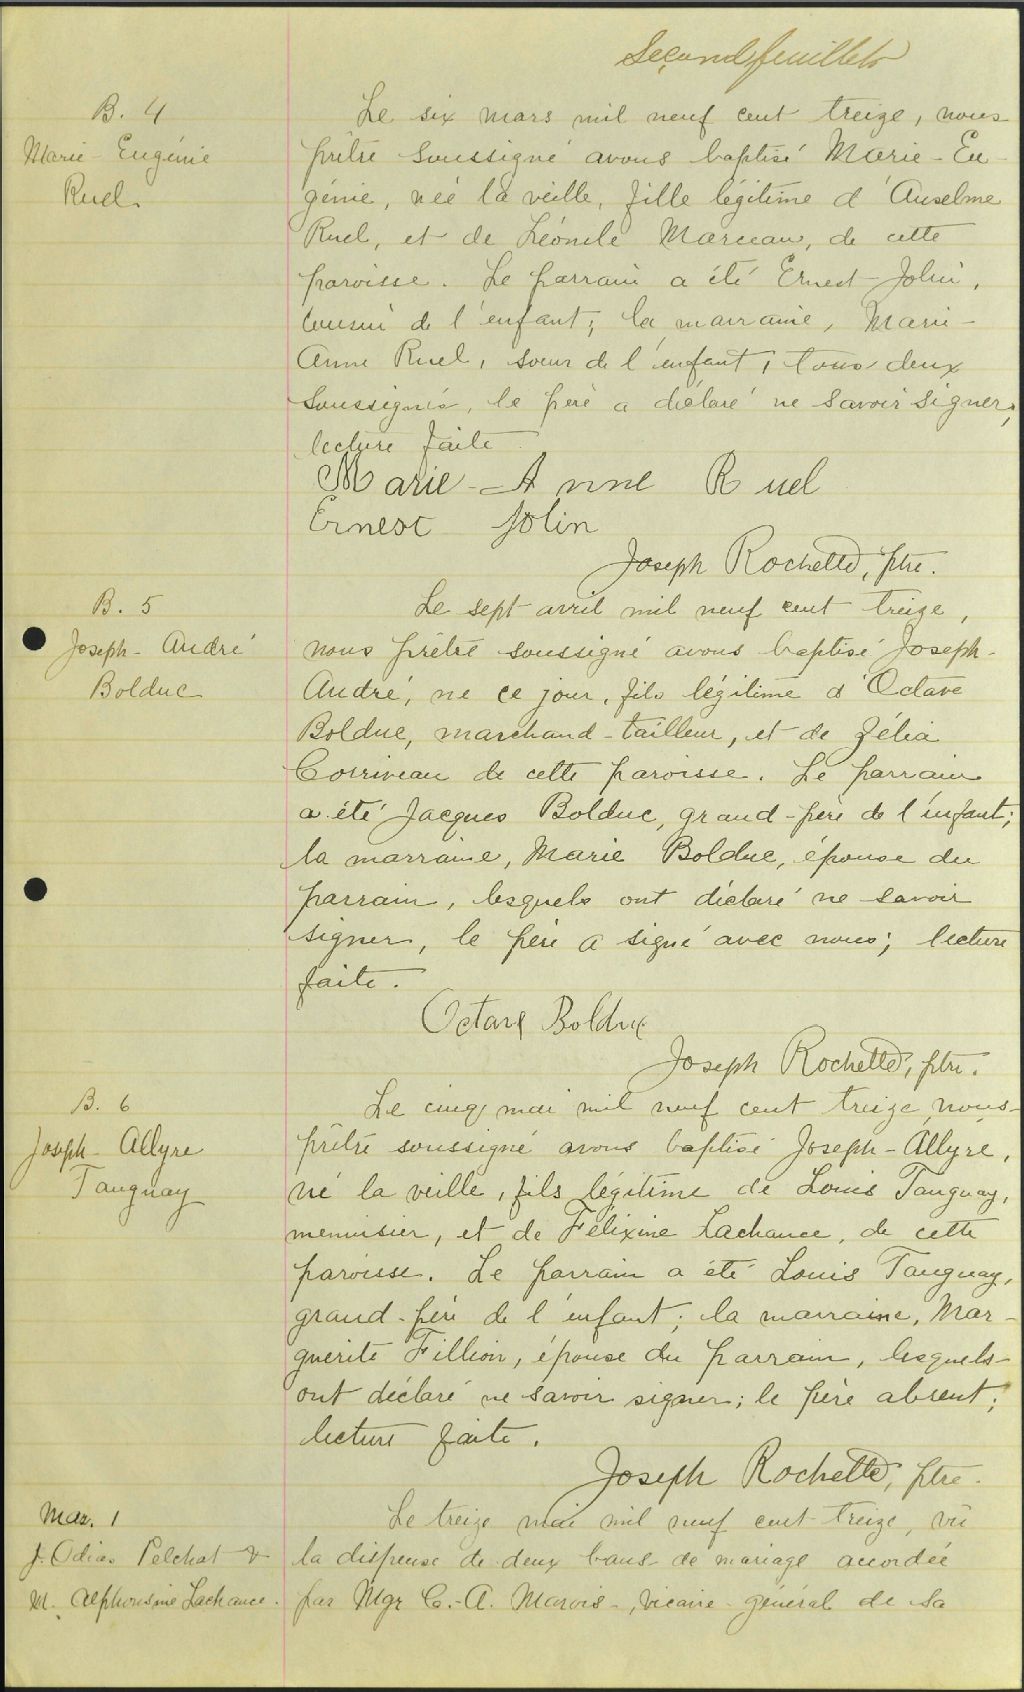 Second feuillet
B. 4
Marie-Eugénie
Ruel.
Le six mars mil neuf cent treize, nous
prêtre soussigné avons baptisé Marie-Eu-
génie, née la veille, fille légitime d'Anselme
Ruel, et de Léonile Marceau, de cette
paroisse. Le parrain a été Ernest Jolin,
cousin de l'enfant; la marraine, Marie-
Anne Ruel, soeur de l'enfant, tous deux
soussignés, le père a déclaré ne savoir signer;
lecture faite
Marie-Anne Ruel
Ernest Jolin
Joseph Rochette, ptre.
B. 5
Joseph-André
Bolduc
Le sept avril mil neuf cent treize,
nous prêtre soussigné avons baptisé Joseph-
André, né ce jour, fils légitime d'Octave
Bolduc, marchand-tailleur, et de Zélia
Corriveau de cette paroisse. Le parrain
a été Jacques Bolduc, grand-père de l'enfant;
la marraine, Marie Bolduc, épouse du
parrain, lesquels ont déclaré ne savoir
signer, le père a signé avec nous; lecture
faite.
Octave Bolduc
Joseph Rochette, ptre.
B. 6
Joseph-Allyre
Tanguay
Le cinq mai mil neuf cent treize, nous
prêtre soussigné avons baptisé Joseph-Allyre,
né la veille, fils légitime de Louis Tanguay,
menuisier, et de Félixine Lachance, de cette
paroisse. Le parrain a été Louis Tanguay,
grand-père de l'enfant; la marraine, Mar-
guerite Fillion, épouse du parrain, lesquels
ont déclaré ne savoir signer; le père absent;
lecture faite.
Joseph Rochette, ptre.
Mar. 1
J. Odias Pelchat &
M. Alphonsine Lachance.
Le treize mai mil neuf cent treize, vu
la dispense de deux bans de mariage accordée
par Mgr C.-A. Marois, vicaire-général de Sa